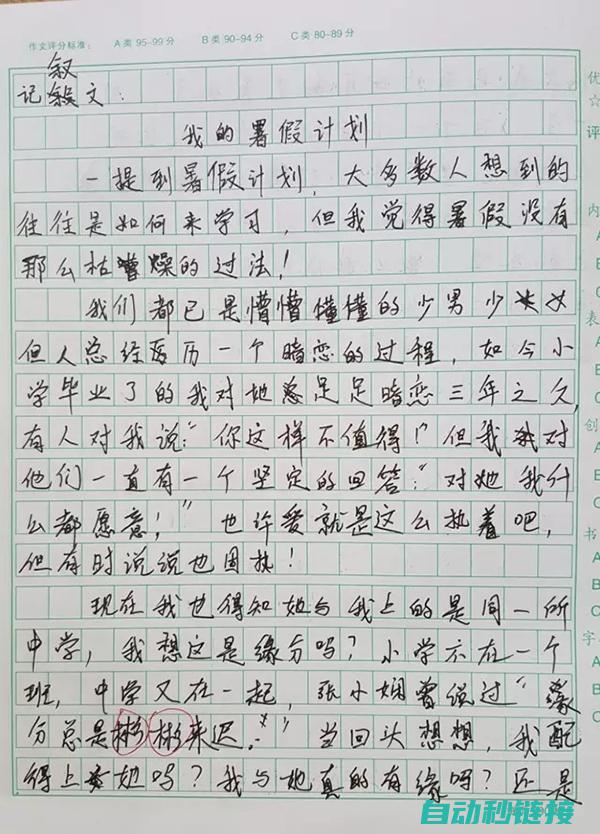 作文评分标准： A类95-99分 B类90-94分 C类80-89分
叙
记文：
我的暑假计划
一提到暑假计划，大多数人想到的
往往是如何来学习，但我觉得暑假没有
那么枯燥的过法！
我们都已是懵懵懂懂的少男少女
但人总经历一个暗恋的过程，如今小
学毕业了的我对她总足足暗恋三年之久，
有人对我说："你这样不值得！"但我对
他们一直有一个坚定的回答："对她我什
么都愿意！"也许爱就是这么执着吧，
但有时说说也固执！
现在我也得知她与我上的是同一所
中学，我想这是缘分吗？小学不在一个
班，中学又在一起，张小娴曾说过"缘
分总是彬彬来迟。"当回头想想，我配
得上她吗？我与她真的有缘吗？还是
优
☆
评
内
A
B
C
表
A
B
C
创
A
B
C
书
A
B
C
字
A
B
自动秒链接